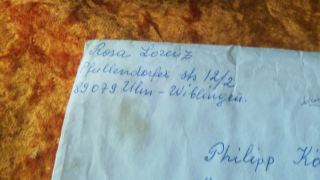 Rosa Lorenz
Pfullendorfer str 12/2
89079 Ulm - Wiblingen.
Philipp Kö